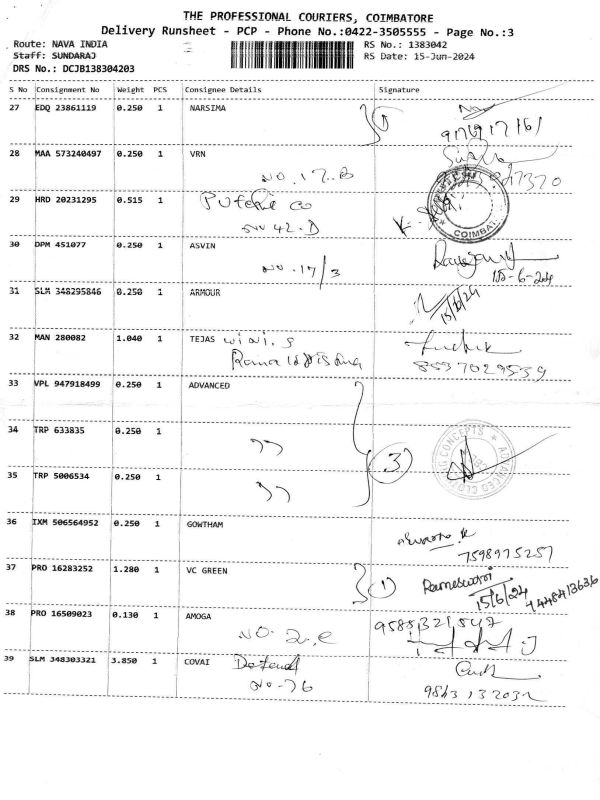 THE PROFESSIONAL COURIERS, COIMBATORE
Delivery Runsheet - PCP - Phone No.:0422-3505555 - Page No.:3
Route: NAVA INDIA RS No.: 1383042
Staff: SUNDARAJ RS Date: 15-Jun-2024
DRS No.: DCJB138304203
S No Consignment No Weight PCS Consignee Details Signature
27 EDQ 23861119 0.250 1 NARSIMA
28 MAA 573240497 0.250 1 VRN
NO. 17. B
29 HRD 20231295 0.515 1
NO 42. D
COIMBAT
30 DPM 451077 0.250 1 ASVIN
NO. 17/3
15-6-24
31 SLM 348295846 0.250 1 ARMOUR
15/6/24
32 MAN 280082 1.040 1 TEJAS
8637029539
33 VPL 947918499 0.250 1 ADVANCED
34 TRP 633835 0.250 1
"
3
ADVANCED CLOTHING CONCEPTS
35 TRP 5006534 0.250 1
"
36 IXM 506564952 0.250 1 GOWTHAM
7598975257
37 PRO 16283252 1.280 1 VC GREEN
1 Rameswari
15/6/24
38 PRO 16509023 0.130 1 AMOGA
NO. 2, e
9585321547
39 SLM 348303321 3.850 1 COVAI
NO - 76